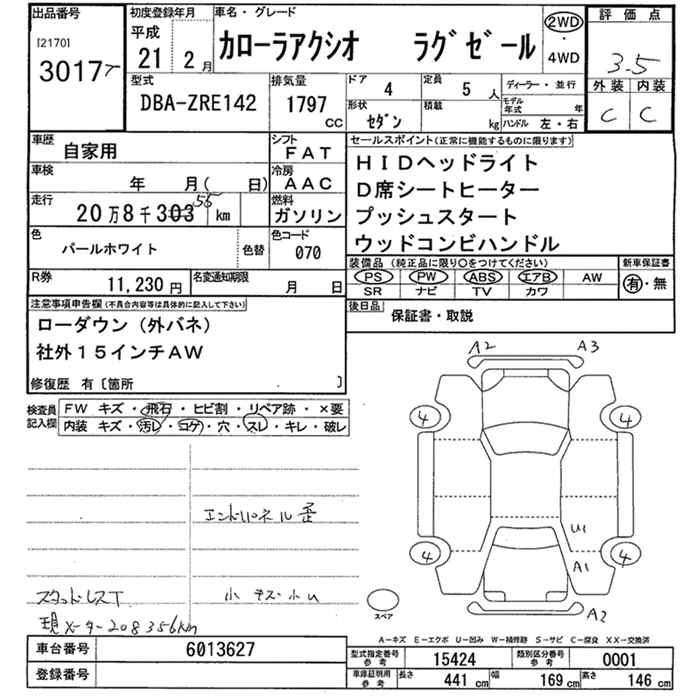 出品番号 初度登録年月 車名・グレード 2WD 評価点
[2170] 平成
3017 21 2月 カローラアクシオ ラグゼール ・4WD 3.5
型式 排気量 ドア 4 定員 5人 ディーラー・並行 外装 内装
DBA-ZRE142 1797cc 形状 セダン 積載 kg モデル年式 年 C C
ハンドル 左・右
車歴 自家用 シフト FAT セールスポイント(正常に機能するものに限ります)
車検 年 月( 日) 冷房 AAC HIDヘッドライト
D席シートヒーター
走行 20万8千303 55 km 燃料 ガソリン プッシュスタート
色 パールホワイト 色替 色コード 070 ウッドコンビハンドル
装備品 (純正品に限り○をつけてください) 新車保証書
R券 11,230円 名変通知期限 月 日 PS PW ABS エアB AW 有・無
SR ナビ TV カワ
注意事項申告欄(不具合内容等は具体的に記入して下さい) 後日品 保証書・取説
ローダウン(外バネ)
社外15インチAW
修復歴 有〔箇所 〕
検査員記入欄 FW キズ・飛石・ヒビ割・リペア跡・×要
内装 キズ・汚レ・コゲ・穴・スレ・キレ・破レ
A2 A3
4 4
エンドパネル歪
U1
4 4
A1
スタッドレスT 小キズ・小U
スペア A2
現メーター208356km
A-キズ E-エクボ U-凹み W-補修跡 S-サビ C-腐食 XX-交換済
車台番号 6013627 型式指定番号 参考 15424 類別区分番号 参考 0001
登録番号 車庫証明用 参考 長さ 441cm 幅 169cm 高さ 146cm